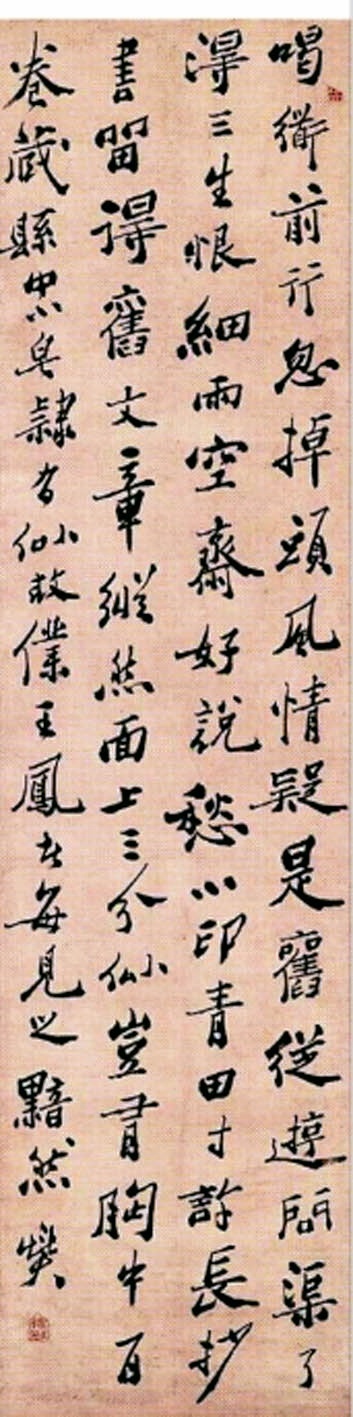 喝衜前行忽掉頭風情疑是舊從遊問渠了
得三生恨細雨空齋好說愁小印青田寸許長抄
書留得舊文章縱然面上三分似豈有胸中百
卷藏縣中皂隸有似故僕王鳳者每見之黯然 燮